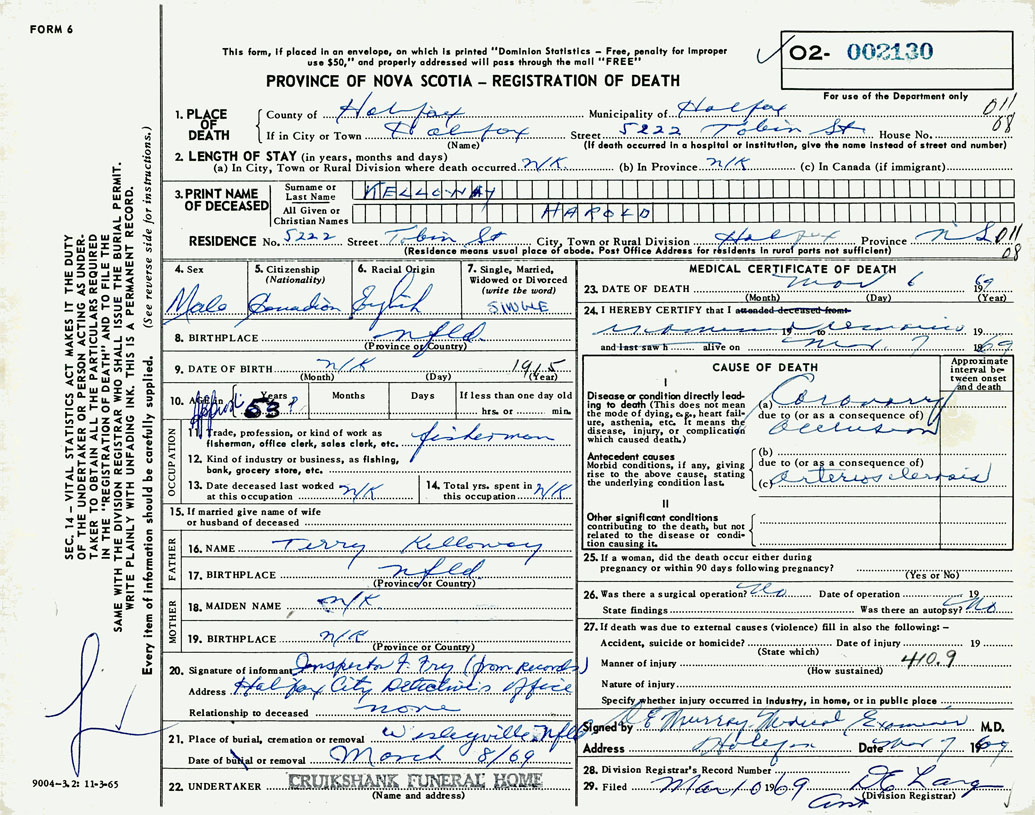 FORM 6
This form, if placed in an envelope, on which is printed "Dominion Statistics – Free, penalty for improper
use $50," and properly addressed will pass through the mail "FREE"
O2- 002130
For use of the Department only
PROVINCE OF NOVA SCOTIA – REGISTRATION OF DEATH
011
08
1. PLACE OF DEATH
County of Halifax Municipality of Halifax
If in City or Town Halifax Street 5222 Tobin St House No.
(Name) (If death occurred in a hospital or institution, give the name instead of street and number)
2. LENGTH OF STAY (in years, months and days)
(a) In City, Town or Rural Division where death occurred N/K (b) In Province N/K (c) In Canada (if immigrant)
3. PRINT NAME OF DECEASED
Surname or Last Name KELLOWAY
All Given or Christian Names HAROLD
RESIDENCE No. 5222 Street Tobin St City, Town or Rural Division Halifax Province N S 011
08
(Residence means usual place of abode. Post Office Address for residents in rural parts not sufficient)
4. Sex
Male
5. Citizenship
(Nationality)
Canadian
6. Racial Origin
English
7. Single, Married,
Widowed or Divorced
(write the word)
SINGLE
8. BIRTHPLACE nfld
(Province or Country)
9. DATE OF BIRTH N/K 1915
(Month) (Day) (Year)
10. Age in Years Months Days If less than one day old
Approx 53 ? hrs. or min.
OCCUPATION
11. Trade, profession, or kind of work as
fisherman, office clerk, sales clerk, etc. fisherman
12. Kind of industry or business, as fishing,
bank, grocery store, etc.
13. Date deceased last worked
at this occupation N/K
14. Total yrs. spent in
this occupation N/K
15. If married give name of wife
or husband of deceased
FATHER
16. NAME Terry Kelloway
17. BIRTHPLACE nfld
(Province or Country)
MOTHER
18. MAIDEN NAME N/K
19. BIRTHPLACE N/K
(Province or Country)
20. Signature of informant Inspector F. Fry (from records)
Address Halifax City Detective's Office
Relationship to deceased none
21. Place of burial, cremation or removal Wesleyville Nfld
Date of burial or removal March 8/69
22. UNDERTAKER CRUIKSHANK FUNERAL HOME
(Name and address)
MEDICAL CERTIFICATE OF DEATH
23. DATE OF DEATH Mar 6 1969
(Month) (Day) (Year)
24. I HEREBY CERTIFY that I attended deceased from
19 to 19
and last saw h alive on Mar. 7 1969
CAUSE OF DEATH
Approximate
interval be-
tween onset
and death
I
Disease or condition directly lead-
ing to death (This does not mean
the mode of dying, e.g., heart fail-
ure, asthenia, etc. It means the
disease, injury, or complication
which caused death.)
(a) Coronary
due to (or as a consequence of)
occlusion
Antecedent causes
Morbid conditions, if any, giving
rise to the above cause, stating
the underlying condition last.
(b)
due to (or as a consequence of)
(c) arteriosclerosis
II
Other significant conditions
contributing to the death, but not
related to the disease or condi-
tion causing it.
25. If a woman, did the death occur either during
pregnancy or within 90 days following pregnancy?
(Yes or No)
26. Was there a surgical operation? No Date of operation 19
State findings Was there an autopsy? No
27. If death was due to external causes (violence) fill in also the following: –
Accident, suicide or homicide? Date of injury 19
(State which)
Manner of injury 410.9
(How sustained)
Nature of injury
Specify whether injury occurred in industry, in home, or in public place
Signed by E Murray Medical Examiner M.D.
Address Halifax Date Mar 7 1969
28. Division Registrar's Record Number
29. Filed Mar 10 1969
(Division Registrar)
SEC. 14 – VITAL STATISTICS ACT MAKES IT THE DUTY
OF THE UNDERTAKER OR PERSON ACTING AS UNDER-
TAKER TO OBTAIN ALL THE PARTICULARS REQUIRED
IN THE "REGISTRATION OF DEATH" AND TO FILE THE
SAME WITH THE DIVISION REGISTRAR WHO SHALL ISSUE THE BURIAL PERMIT.
WRITE PLAINLY WITH UNFADING INK. THIS IS A PERMANENT RECORD.
Every item of information should be carefully supplied. (See reverse side for instructions.)
9004–3.2: 11-3-65